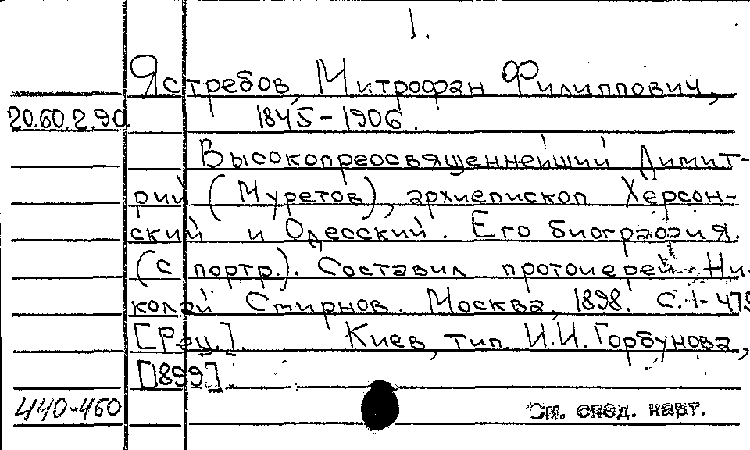 1.
Ястребов, Митрофан Филиппович,
20.60.2.90. 1845-1906.
Высокопреосвященнейший Димит-
рий (Муретов), архиепископ Херсон-
ский и Одесский. Его биография.
(с портр.). Составил протоиерей Ни-
колай Смирнов. Москва, 1898. С. 1-475
[Рец.]. Киев, тип. И.И. Горбунова,
[1899].
440-460 См. след. карт.